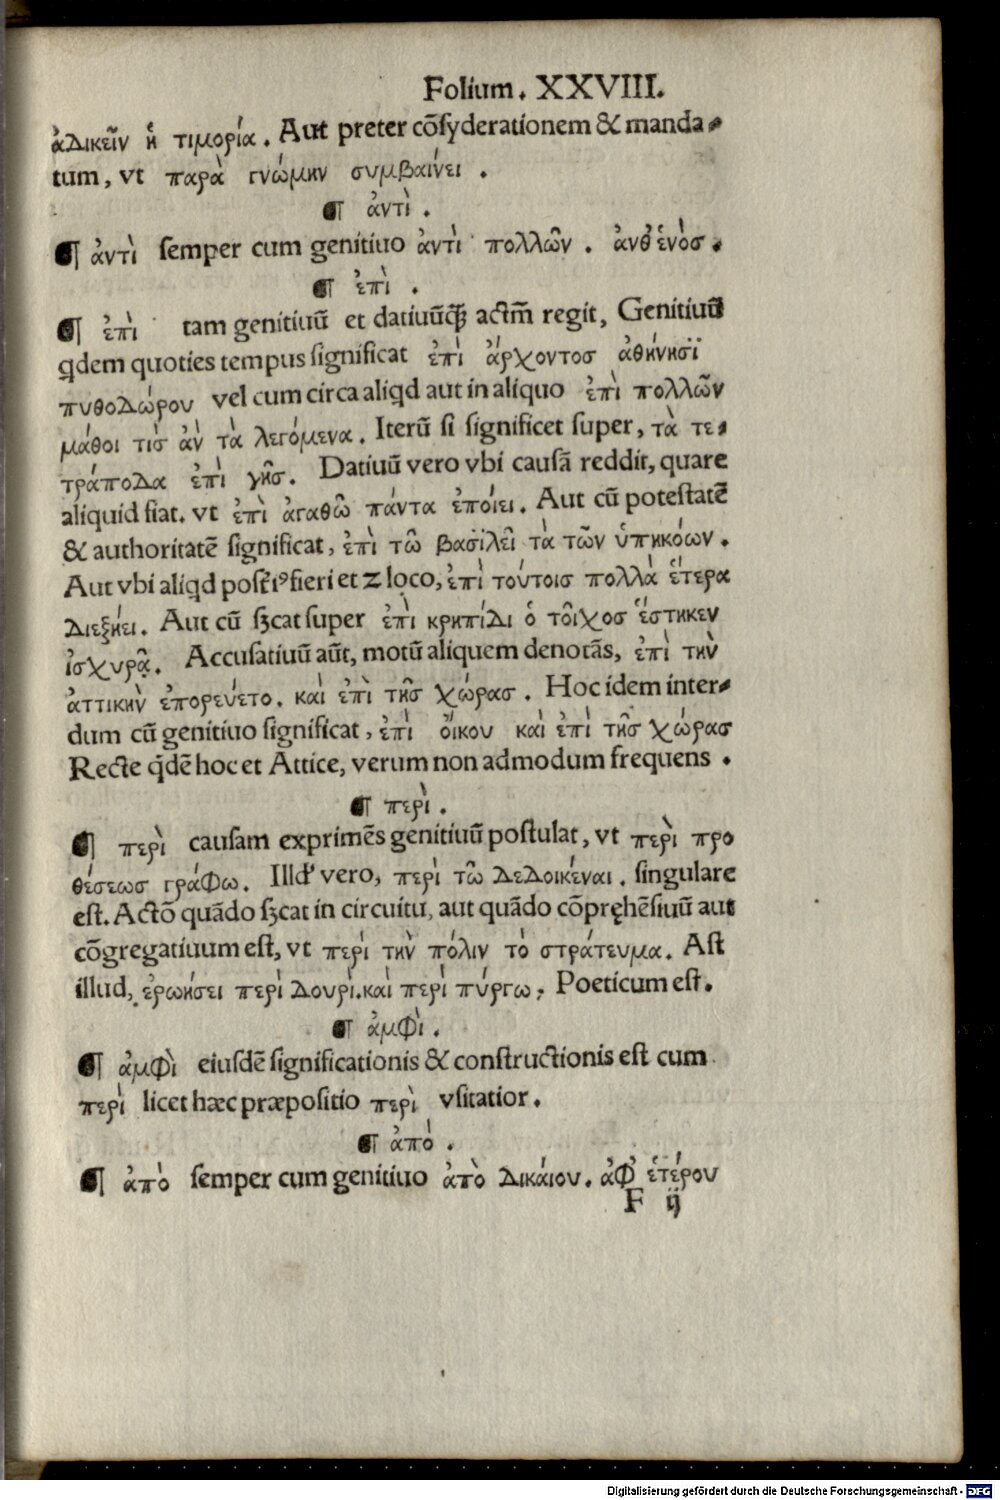 Folium. XXVIII.
ἀδικεῖν ἡ τιμορία. Aut preter cõsyderationem & manda-
tum, vt παρὰ γνώμην συμβαίνει.
¶ ἀντὶ.
¶ ἀντὶ semper cum genitiuo ἀντὶ πολλῶν. ἀνθ ἑνὸσ.
¶ ἐπὶ.
¶ ἐπὶ tam genitiuũ et datiuũq̃ȝ actm̃ regit, Genitiuũ
qdem quoties tempus significat ἐπὶ ἄρχοντοσ ἀθήνησϊ
πυθοδώρου vel cum circa aliqd aut in aliquo ἐπὶ πολλῶν
μάθοι τὶσ ἀν τὰ λεγόμενα. Iterũ si significet super, τὰ τε-
τράποδα ἐπὶ γῆσ. Datiuũ vero vbi causã reddit, quare
aliquid fiat. vt ἐπὶ ἀγαθῶ πάντα ἐποίει. Aut cũ potestatẽ
& authoritatẽ significat, ἐπὶ τῶ βασϊλεῖ τὰ τῶν ὑπηκόων.
Aut vbi aliqd posťi⁹ fieri et z loco, ἐπὶ τούτοισ πολλὰ ἕτερα
διεξήει. Aut cũ sȝcat super ἐπὶ κρηπίδι ὁ τοῖχοσ ἕστηκεν
ἰσχυρᾷ. Accusatiuũ aũt, motũ aliquem denotãs, ἐπὶ τὴν
ἀττικὴν ἐπορεύετο. καὶ ἐπὶ τῆσ χώρασ. Hoc idem inter-
dum cũ genitiuo significat, ἐπὶ οἴκου καὶ ἐπὶ τῆσ χώρασ
Recte q̇dẽ hoc et Attice, verum non admodum frequens.
¶ περὶ.
¶ περὶ causam exprimẽs genitiuũ postulat, vt περὶ προ
θέσεωσ γράφω. Illď vero, περὶ τῶ δεδοικέναι. singulare
est. Actõ quãdo sȝcat in circuitu, aut quãdo cõpręhẽsiuũ aut
cõgregatiuum est, vt περὶ τὴν πόλιν τὸ στράτευμα. Ast
illud, ἐρωήσει περὶ δουρὶ. καὶ περὶ πύργω, Poeticum est.
¶ ἀμφὶ.
¶ ἀμφὶ eiusdẽ significationis & constructionis est cum
περὶ licet hæc præpositio περὶ vsitatior.
¶ ἀπὸ.
¶ ἀπὸ semper cum genitiuo ἀπὸ δικάιου. ἀφ ἑτέρου
F ij
Digitalisierung gefördert durch die Deutsche Forschungsgemeinschaft - DFG